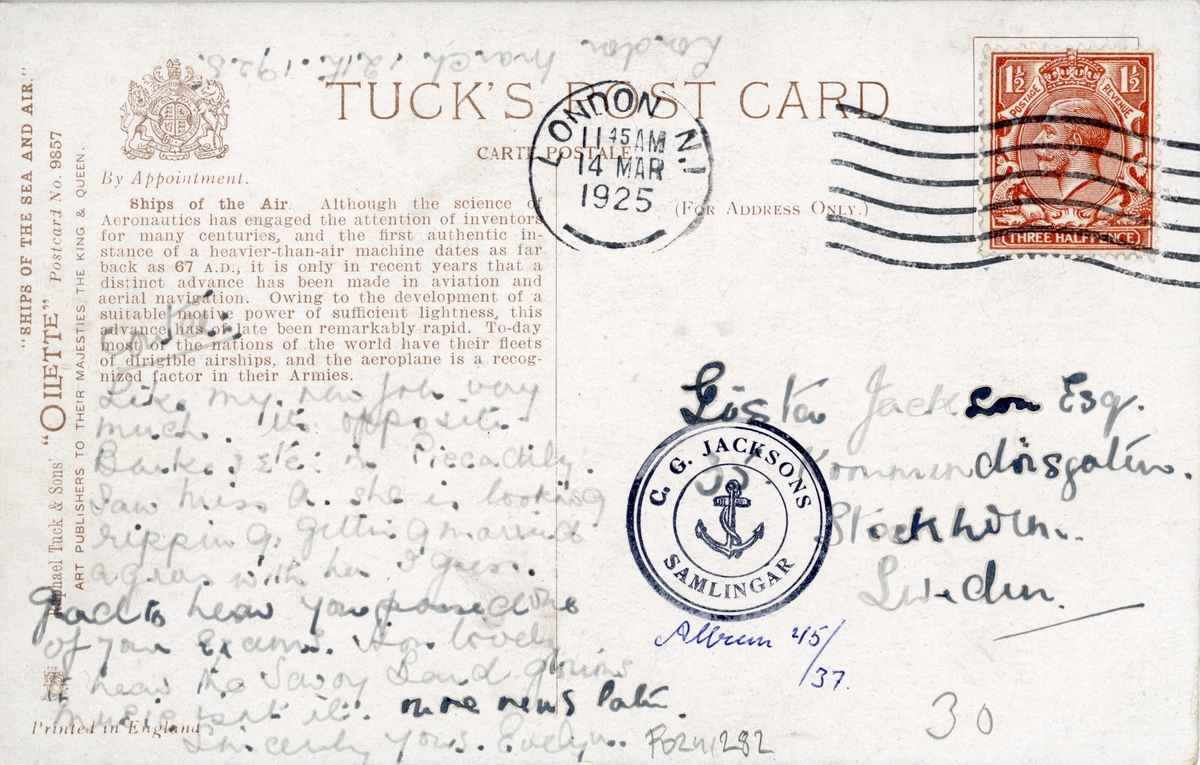 London March 12th 1925.
TUCK'S POST CARD
CARTE POSTALE
(FOR ADDRESS ONLY.)
By Appointment.
"SHIPS OF THE SEA AND AIR."
"OILETTE" Postcard No. 9857
Raphael Tuck & Sons'
ART PUBLISHERS TO THEIR MAJESTIES THE KING & QUEEN.
Ships of the Air. Although the science of
Aeronautics has engaged the attention of inventors
for many centuries, and the first authentic in-
stance of a heavier-than-air machine dates as far
back as 67 A.D., it is only in recent years that a
distinct advance has been made in aviation and
aerial navigation. Owing to the development of a
suitable motive power of sufficient lightness, this
advance has of late been remarkably rapid. To-day
most of the nations of the world have their fleets
of dirigible airships, and the aeroplane is a recog-
nized factor in their Armies.
Like my new job very
much. Its opposite
Barkers etc. in Piccadilly.
Saw Miss A. she is looking
ripping. Getting married
agrees with her I guess.
Glad to hear you passed one
of your exams. How lovely
hear the Savoy Band
music isnt it. more news later.
Sincerely yours Evelyn.
Printed in England
LONDON N.1
11 45 AM
14 MAR
1925
1½ 1½
POSTAGE REVENUE
THREE HALFPENCE
Gösta Jackson Esq.
33 Kommendörsgatan.
Stockholm.
Sweden.
C. G. JACKSONS
SAMLINGAR
Album 45/
37.
30